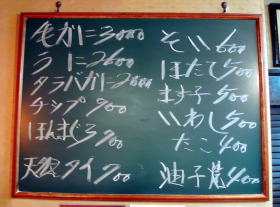 毛ガニ3000
うに2600
タラバガニ2600
チップ900
ほんまぐろ900
天然タイ700
そい600
ほたて500
ます子500
いわし500
たこ400
油子焼400